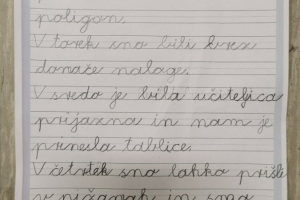 poligon.
V torek smo bili brez
domače naloge.
V sredo je bila učiteljica
prijazna in nam je
prinesla tablice.
V četrtek smo lahko prišli
v pižamah in smo